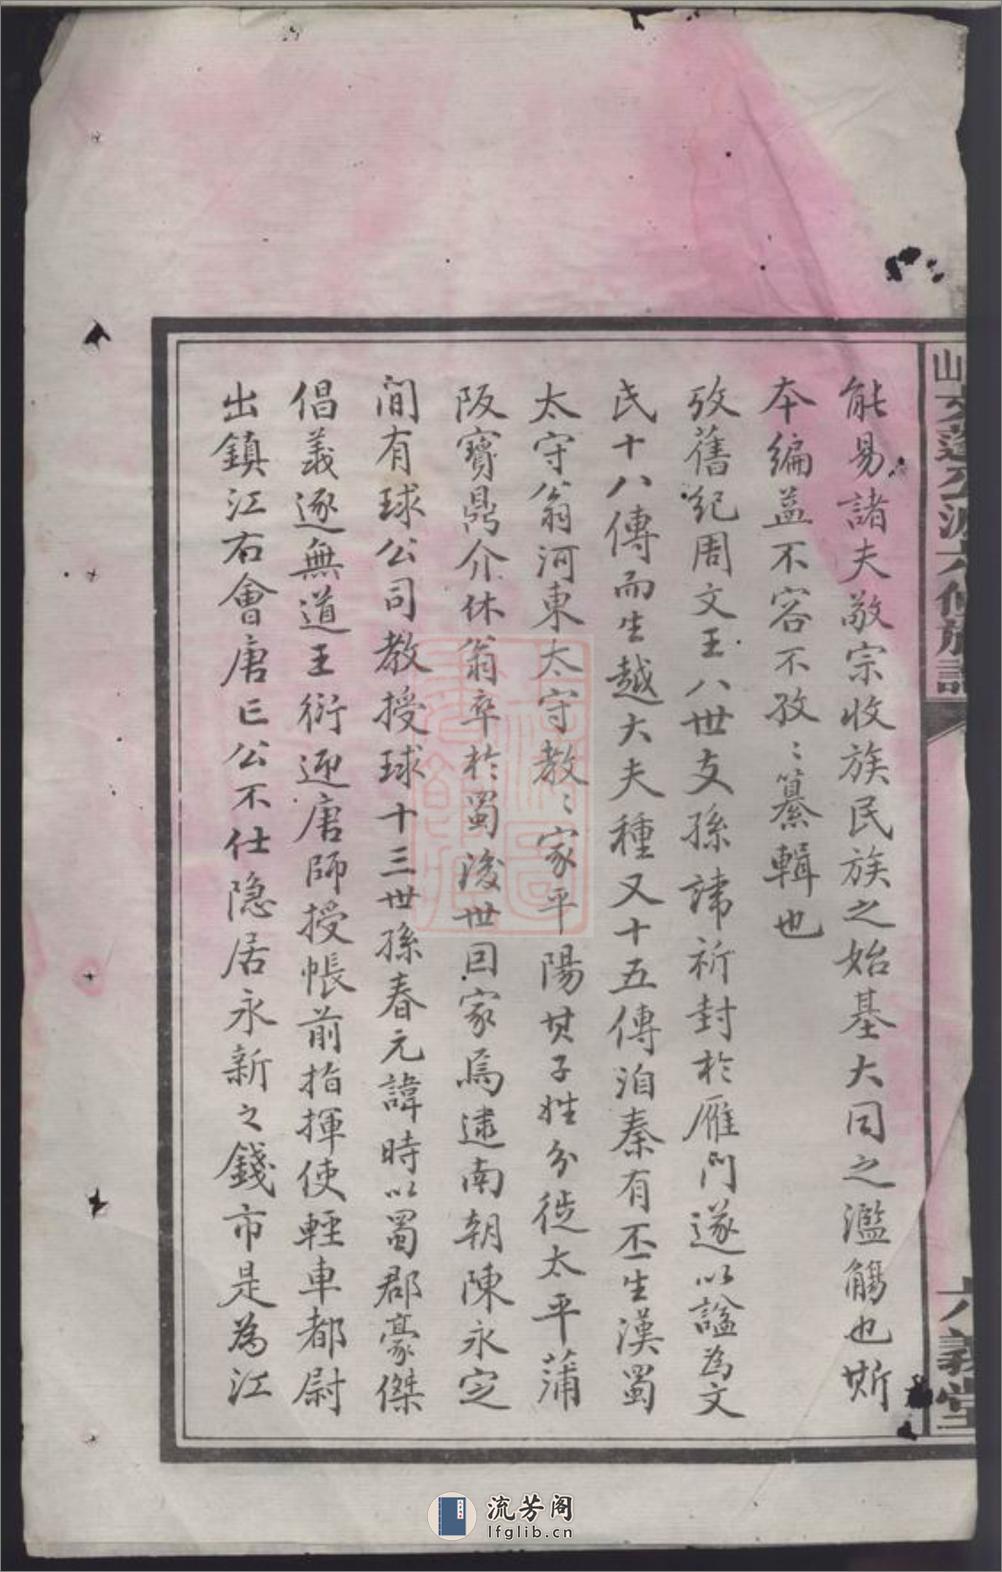 能易諸夫敬宗收族民族之始基大同之濫觴也斯
本編益不容不孜〻纂輯也
攷舊紀周文王八世支孫諱祈封於雁門遂以謚為文
氏十八傳而生越大夫種又十五傳洎秦有丕丕生漢蜀
太守翁河東太守教〻家平陽其子姓分徙太平蒲
阪寶鼎介休翁卒於蜀後世因家焉逮南朝陳永定
間有球公司教授球十三世孫春元諱時以蜀郡豪傑
倡義逐無道王衍迎唐師授帳前指揮使輕車都尉
出鎮江右會唐亡公不仕隐居永新之錢市是為江
山文蓬公派六修族譜
六義堂
流芳阁
lfglib.cn